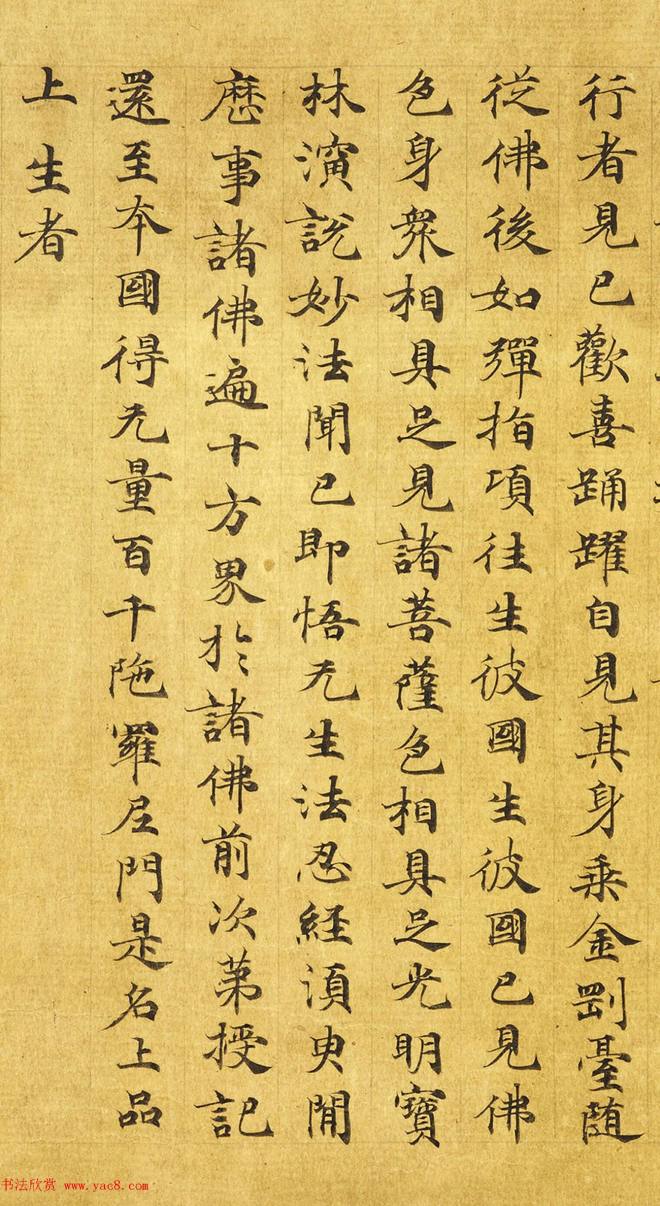 行者見已歡喜踊躍自見其身乗金剛臺随
從佛後如彈指項往生彼國生彼國已見佛
色身衆相具足見諸菩薩色相具足光明寶
林演說妙法聞已即悟无生法忍經湏臾閒
歷事諸佛遍十方界於諸佛前次第授記
還至本國得无量百千陁羅尼門是名上品
上生者
书法欣赏 www.yac8.com